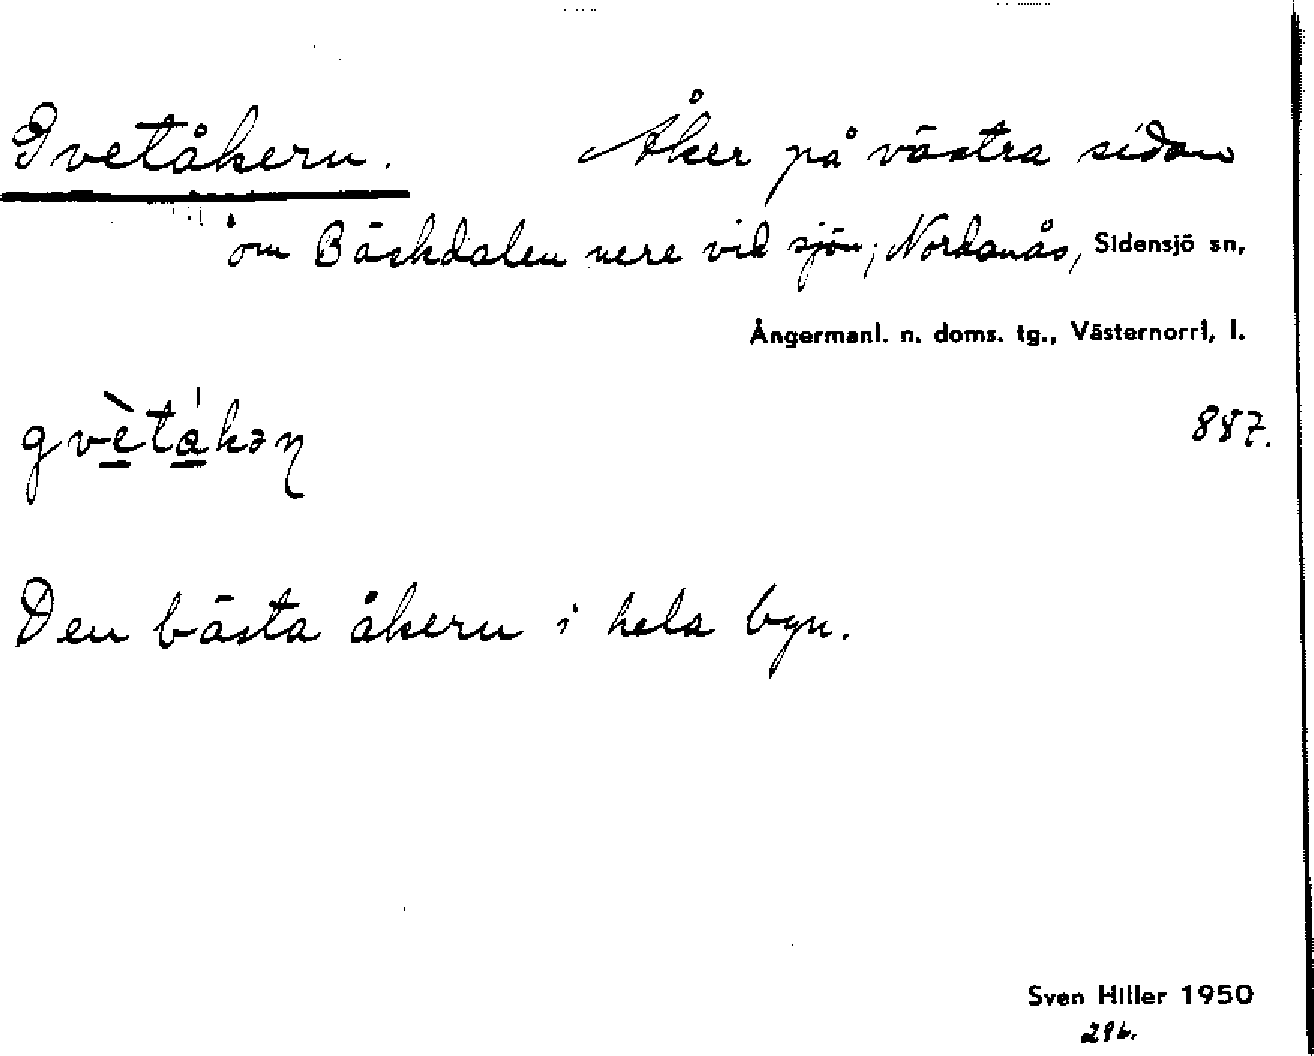 Gvetåkern. Åker på västra sidan
om Bäckdalen nere vid sjön, Nordanås, Sidensjö sn,
Ångermanl. n. doms. tg., Västernorrl. l.
gvètákəɳ 887.
Den bästa åkern i hela byn.
Sven Hiller 1950